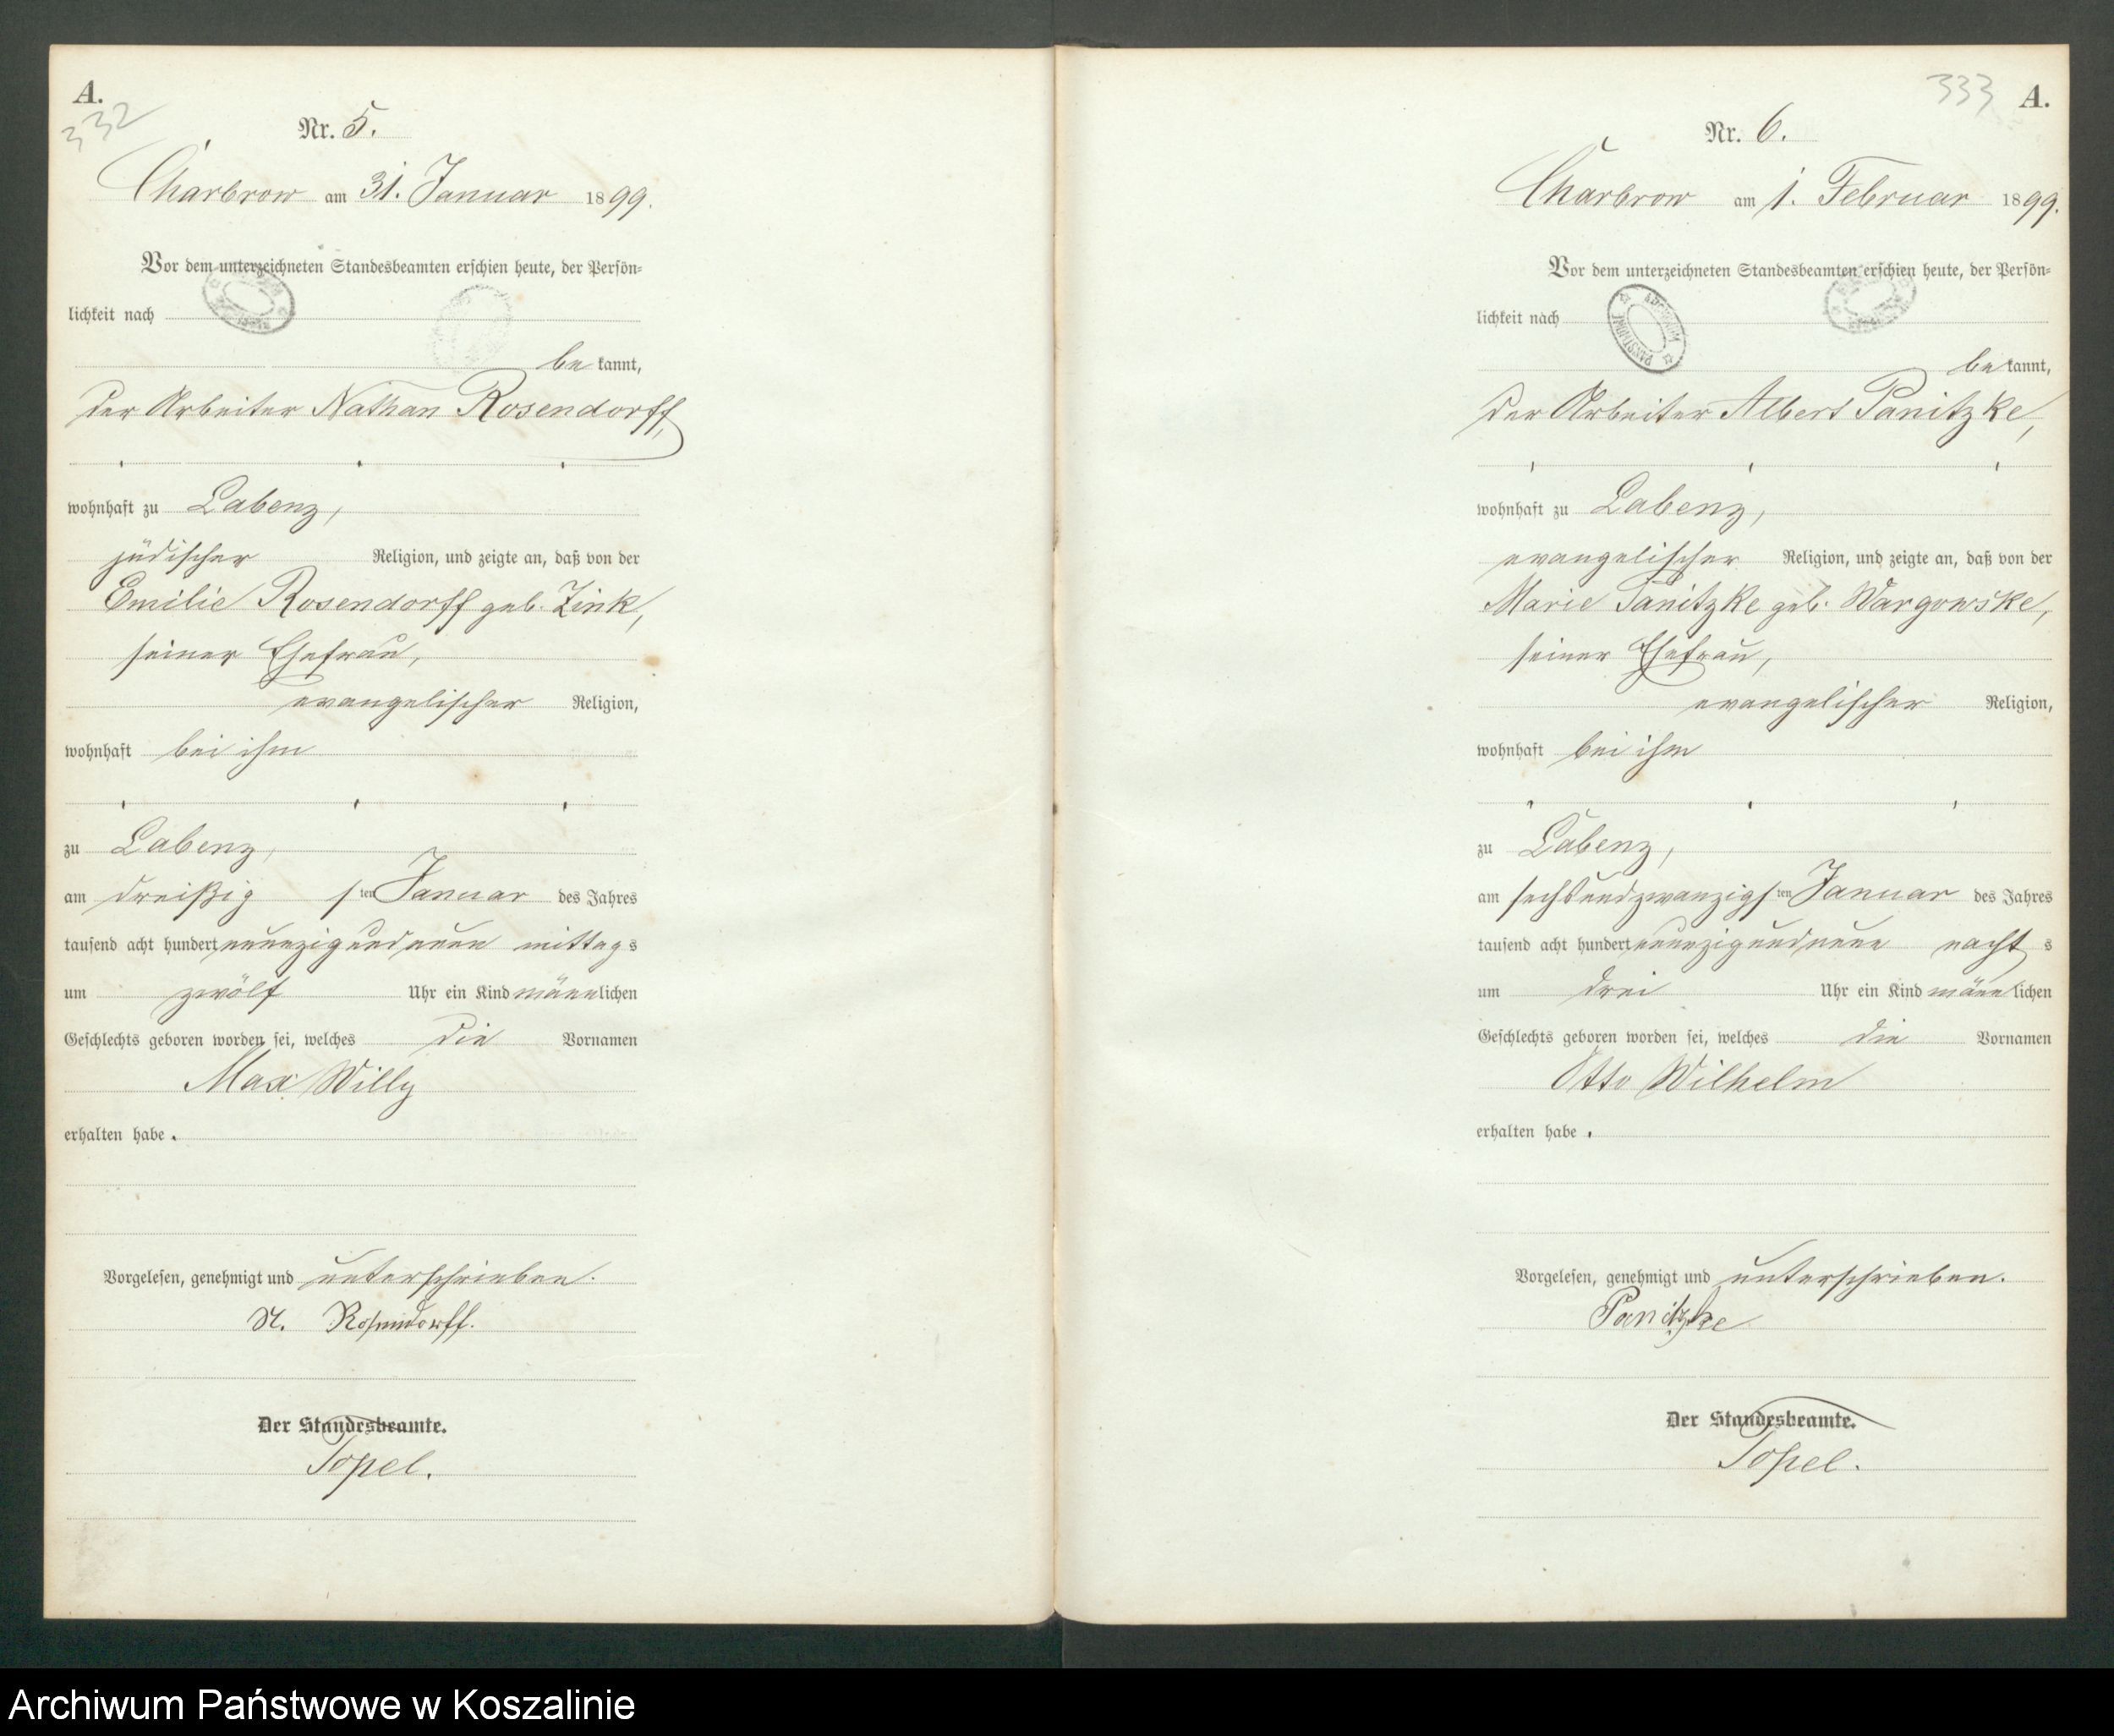 A.
332
Nr. 5.
Charbrow am 31. Januar 1899.
Vor dem unterzeichneten Standesbeamten erschien heute, der Persön-
lichkeit nach
be kannt,
der Arbeiter Nathan Rosendorff,
wohnhaft zu Labenz,
jüdischer Religion, und zeigte an, daß von der
Emilie Rosendorff geb. Zink,
seiner Ehefrau,
evangelischer Religion,
wohnhaft bei ihm
zu Labenz,
am dreißigsten Januar des Jahres
tausend acht hundert neunzig und neun mittags
um zwölf Uhr ein Kind männlichen
Geschlechts geboren worden sei, welches die Vornamen
Max Willy
erhalten habe.
Vorgelesen, genehmigt und unterschrieben.
N. Rosendorff.
Der Standesbeamte.
Topel.
333 A.
Nr. 6.
Charbrow am 1. Februar 1899.
Vor dem unterzeichneten Standesbeamten erschien heute, der Persön-
lichkeit nach
be kannt,
der Arbeiter Albert Panitzke,
wohnhaft zu Labenz,
evangelischer Religion, und zeigte an, daß von der
Marie Panitzke geb. Wargowske,
seiner Ehefrau,
evangelischer Religion,
wohnhaft bei ihm
zu Labenz,
am sechsundzwanzigsten Januar des Jahres
tausend acht hundert neunzig und neun nachts
um drei Uhr ein Kind männlichen
Geschlechts geboren worden sei, welches die Vornamen
Otto Wilhelm
erhalten habe.
Vorgelesen, genehmigt und unterschrieben.
Panitzke
Der Standesbeamte.
Topel.
Archiwum Państwowe w Koszalinie